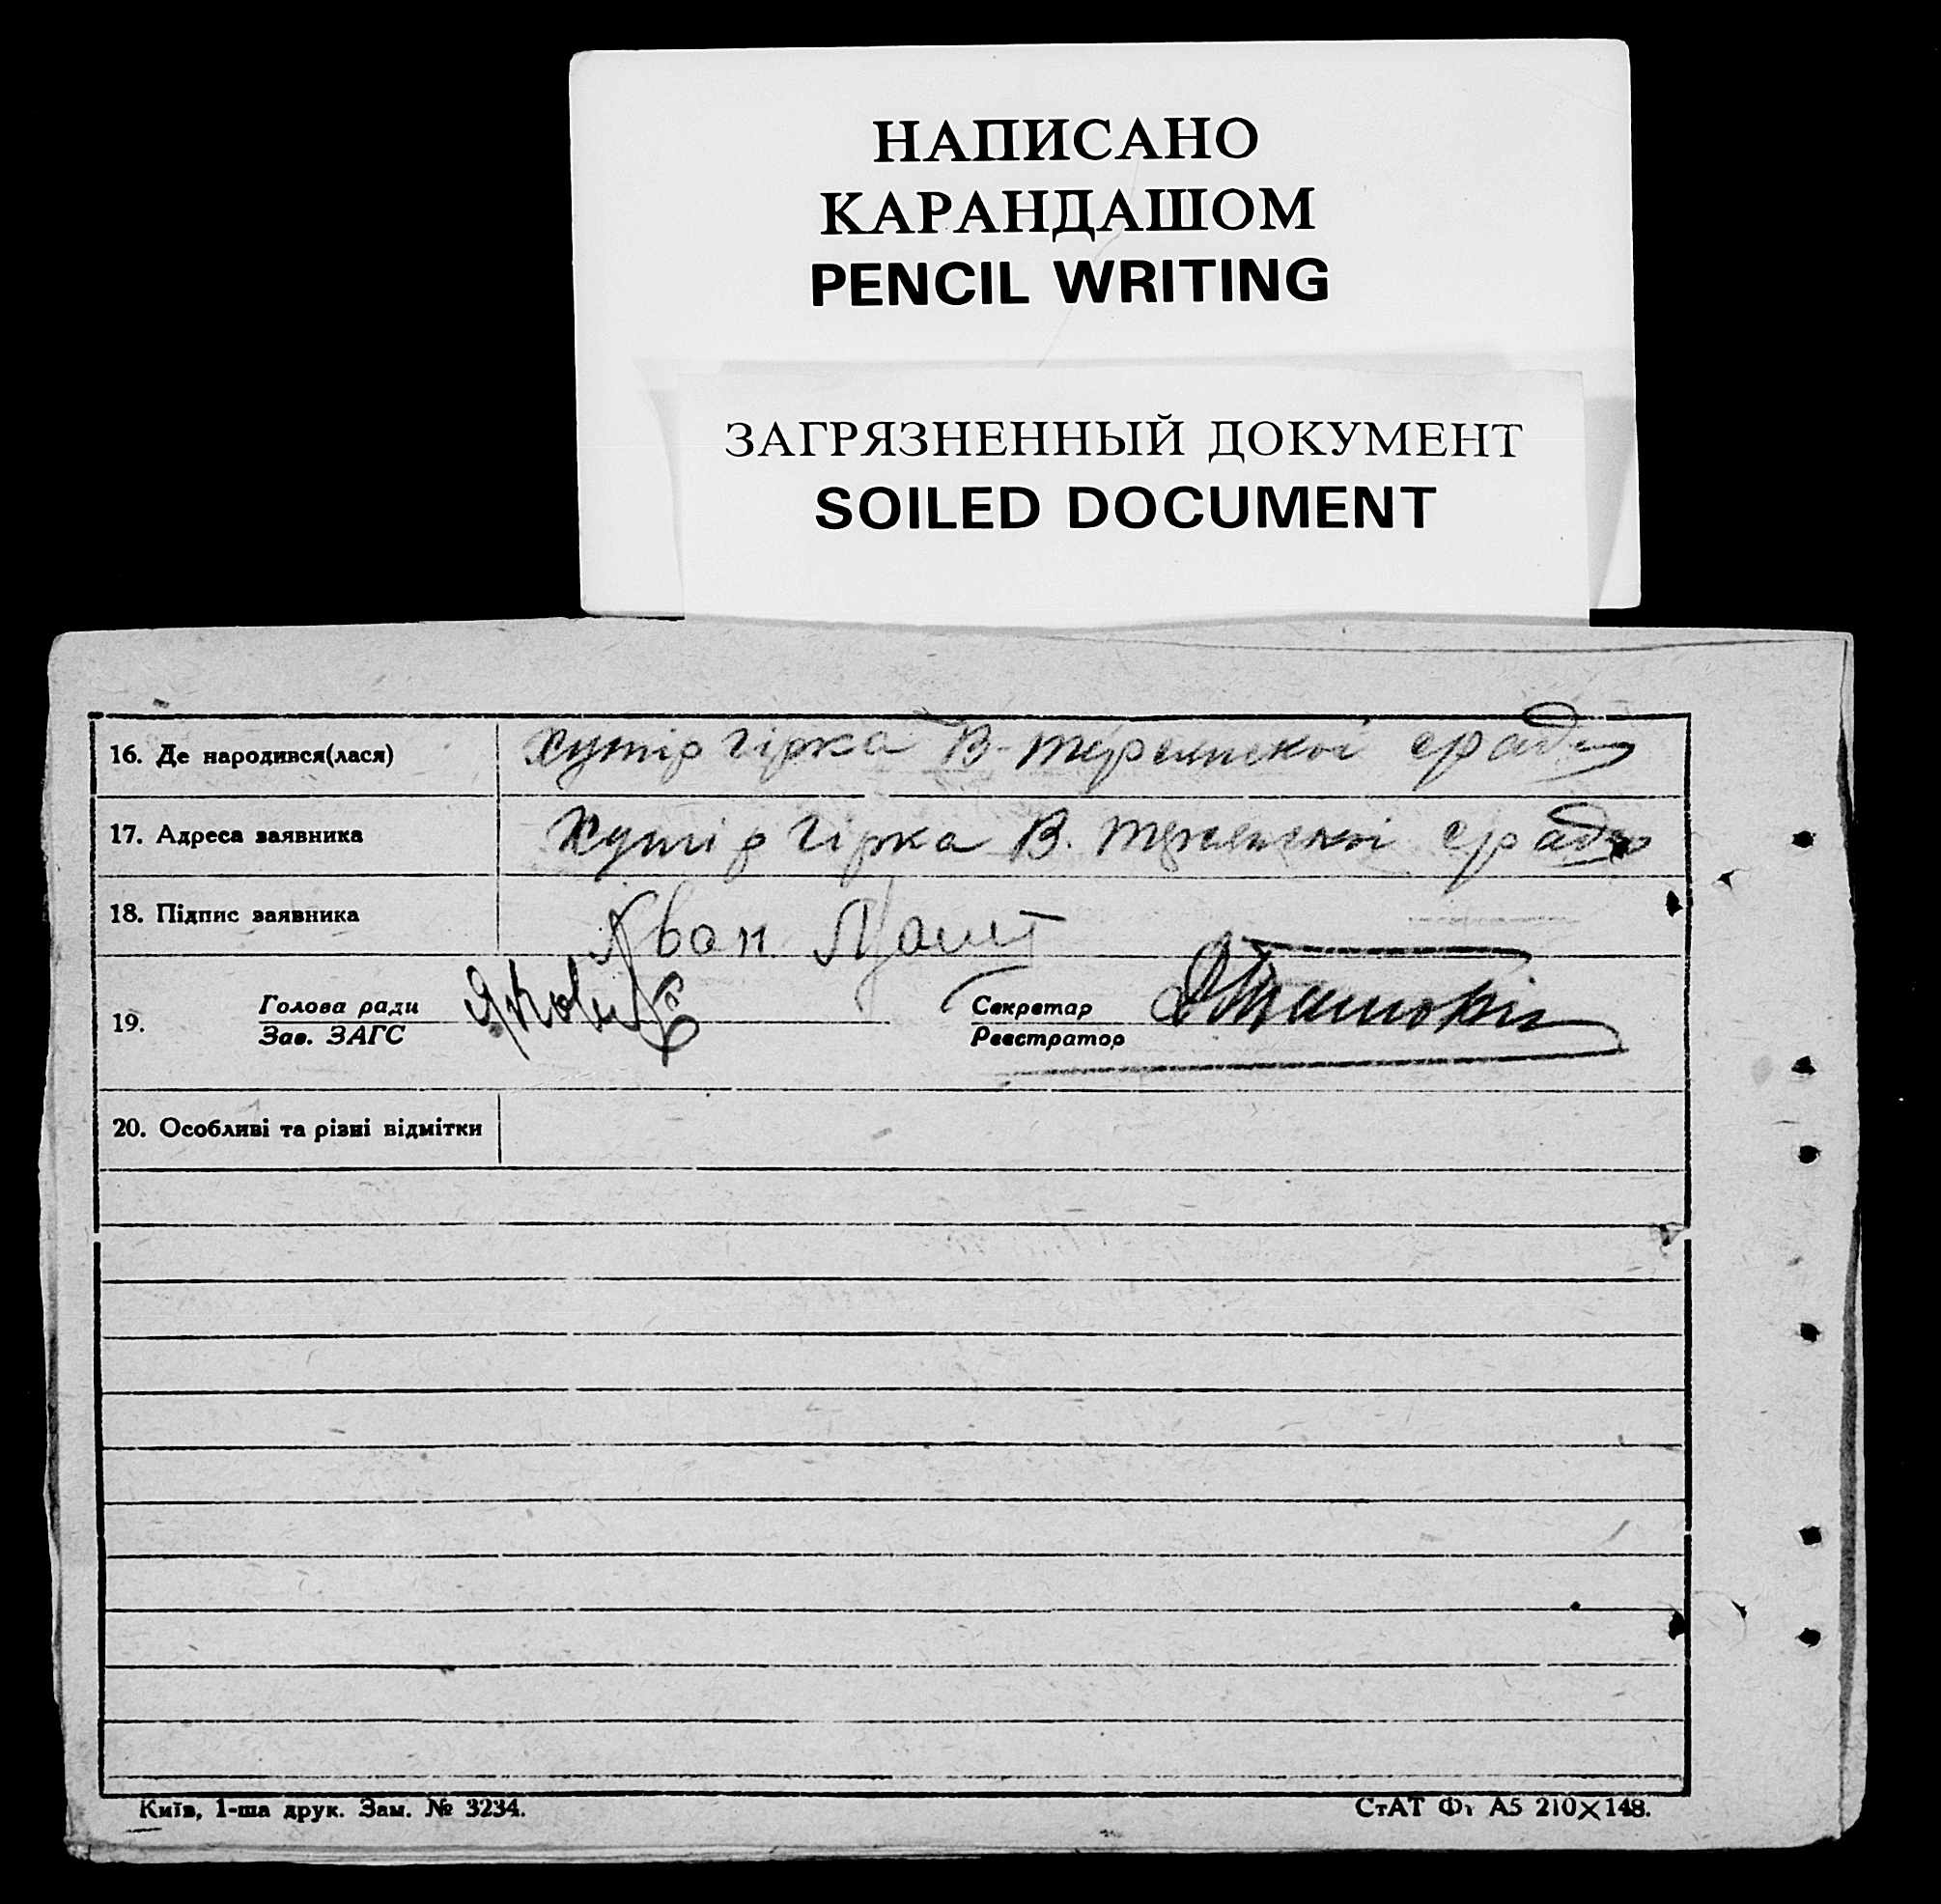 НАПИСАНО
КАРАНДАШОМ
PENCIL WRITING
ЗАГРЯЗНЕННЫЙ ДОКУМЕНТ
SOILED DOCUMENT
16. Де народився(лася) хутір гірка В-
17. Адреса заявника Хутір гірка В.
18. Підпис заявника Іван
19. Голова ради
Зав. ЗАГС
Секретар
Реєстратор
20. Особливі та різні відмітки
Київ, 1-ша друк. Зам. № 3234.
СтАТ Фт А5 210×148.